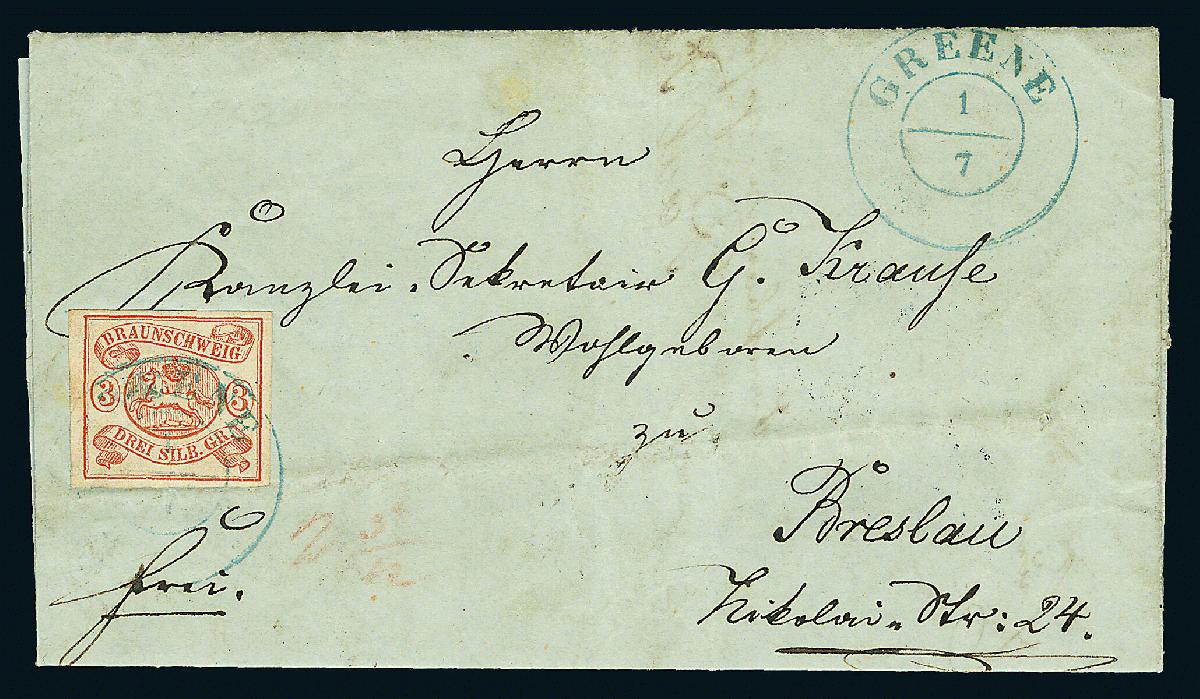 GREENE
1
7
Herrn
Kanzlei-Sekretair G. Krause
Wohlgeboren
zu
Breslau
Nikolai-Str: 24.
BRAUNSCHWEIG
3 3
DREI SILB. GR.
frei.